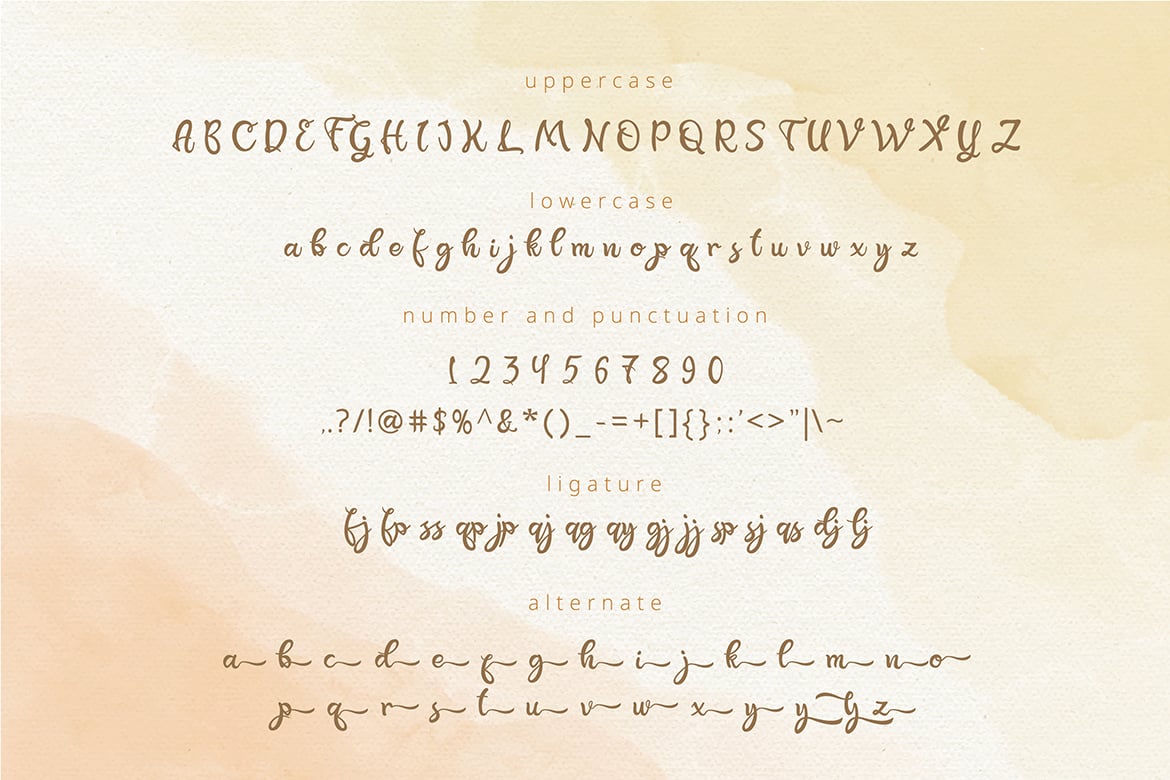 uppercase
A B C D E F G H I J K L M N O P Q R S T U V W X Y Z
lowercase
a b c d e f g h i j k l m n o p q r s t u v w x y z
number and punctuation
1 2 3 4 5 6 7 8 9 0
,.?/!@#$%^&*()_-=+[]{};:’<>”|\~
ligature
fj fp ss qp jp qj ag ay gj jj sp sj as dj lj
alternate
a b c d e f g h i j k l m n o
p q r s t u v w x y y y z